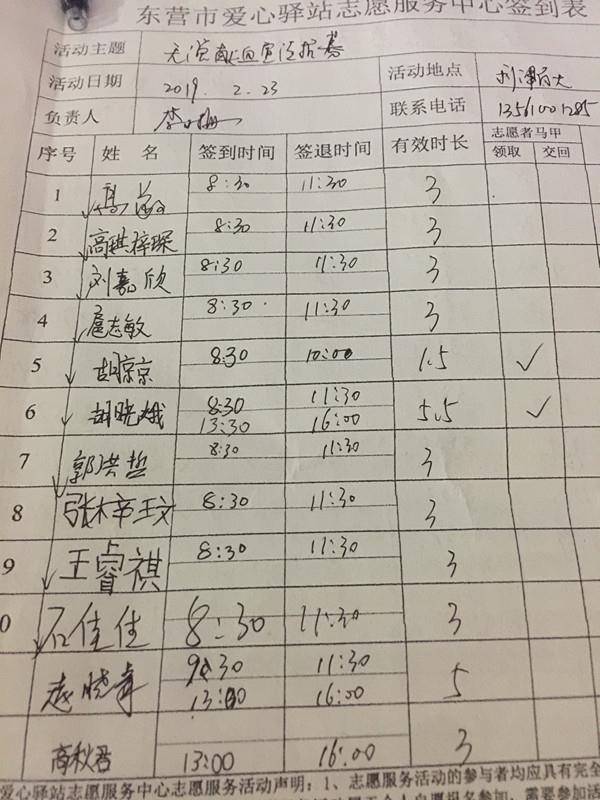 东营市爱心驿站志愿服务中心签到表
活动主题 无偿献血宣传招募
活动日期 2019. 2. 23 活动地点 利津百大
负责人 李 梅 联系电话 13561001285
序号 姓 名 签到时间 签退时间 有效时长 志愿者马甲
领取 交回
1 8:30 11:30 3
2 高祺梓琛 8:30 11:30 3
3 刘嘉欣 8:30 11:30 3
4 扈志敏 8:30 11:30 3
5 胡京京 8:30 10:00 1.5 ✓
6 胡晓娥 8:30 11:30 5.5 ✓
13:30 16:00
7 郭洪哲 8:30 11:30 3
8 张梓玟 8:30 11:30 3
9 王睿祺 8:30 11:30 3
0 石佳佳 8:30 11:30 3
赵晓青 9:30 11:30 5
13:00 16:00
高秋君 13:00 16:00 3
爱心驿站志愿服务中心志愿服务活动声明：1、志愿服务活动的参与者均应具有完全